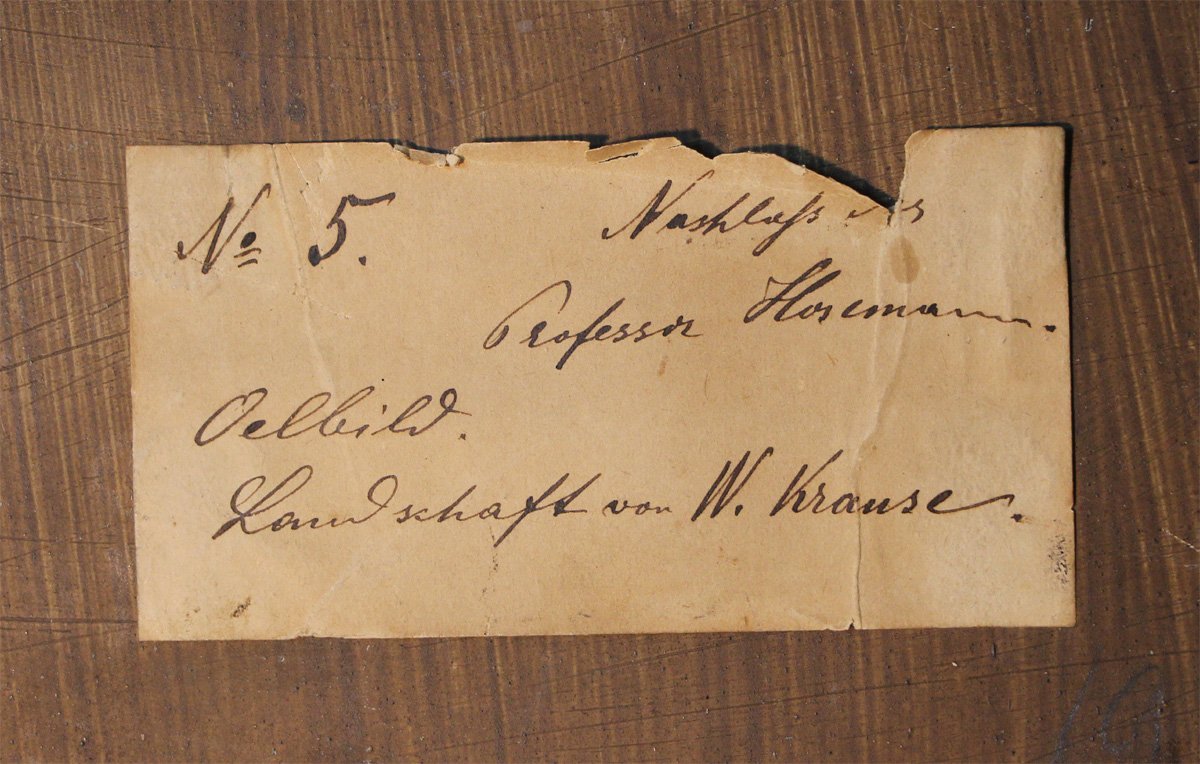 No 5.
Nachlaß des
Professor Hosemann.
Oelbild.
Landschaft von W. Krause.